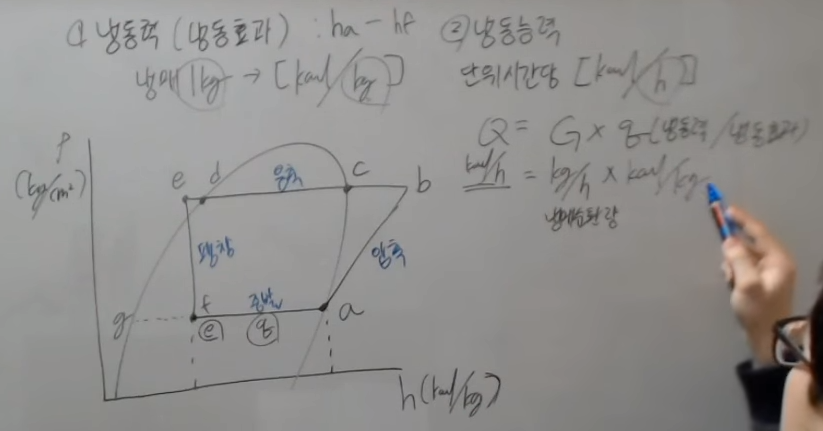 ① 냉동력 (냉동효과) : ha - hf
냉매 1kg → [kcal/kg]
② 냉동능력
단위시간당 [kcal/h]
Q = G × q (냉동력/냉동효과)
kcal/h = kg/h × kcal/kg
냉매순환량
P
(kg/cm²)
e d 응축 c b
팽창 압축
g f 증발 a
e q
h (kcal/kg)